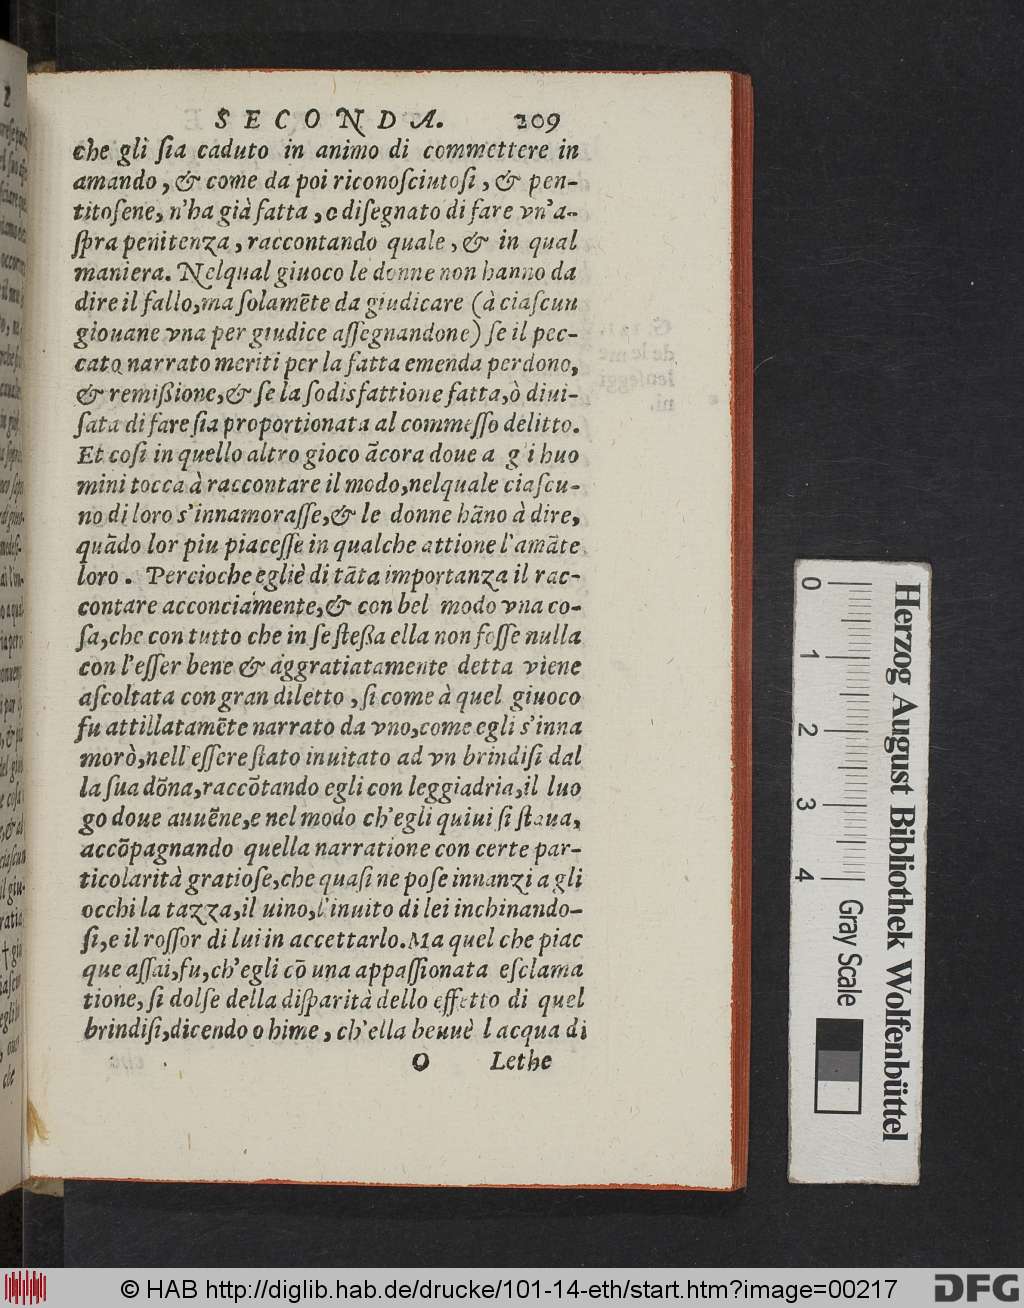 SECONDA. 209
che gli ſia caduto in animo di commettere in
amando, & come da poi riconoſciutoſi, & pen-
titoſene, n'ha già fatta, o diſegnato di fare vn'a-
ſpra penitenza, raccontando quale, & in qual
maniera. Nelqual giuoco le donne non hanno da
dire il fallo, ma ſolamēte da giudicare (à ciaſcun
giouane vna per giudice aſſegnandone) ſe il pec-
cato narrato meriti per la fatta emenda perdono,
& remißione, & ſe la ſodisfattione fatta, ò diui-
ſata di fare ſia proportionata al commeſſo delitto.
Et coſi in quello altro gioco ācora doue a g i huo
mini tocca à raccontare il modo, nelquale ciaſcu-
no di loro s'innamoraſſe, & le donne hāno à dire,
quādo lor piu piaceſſe in qualche attione l'amāte
loro. Percioche egliè di tāta importanza il rac-
contare acconciamente, & con bel modo vna co-
ſa, che con tutto che in ſe ſteßa ella non foſſe nulla
con l'eſſer bene & aggratiatamente detta viene
aſcoltata con gran diletto, ſi come à quel giuoco
fu attillatamēte narrato da vno, come egli s'inna
morò, nell'eſſere ſtato inuitato ad vn brindiſi dal
la ſua dōna, raccōtando egli con leggiadria, il luo
go doue auuēne, e nel modo ch'egli quiui ſi ſtaua,
accōpagnando quella narratione con certe par-
ticolarità gratioſe, che quaſi ne poſe innanzi a gli
occhi la tazza, il uino, l'inuito di lei inchinando-
ſi, e il roſſor di lui in accettarlo. Ma quel che piac
que aſſai, fu, ch'egli cō una appaſſionata eſclama
tione, ſi dolſe della diſparità dello effetto di quel
brindiſi, dicendo o hime, ch'ella beuuè l acqua di
O Lethe
0 1 2 3 4
Gray Scale
Herzog August Bibliothek Wolfenbüttel
© HAB http://diglib.hab.de/drucke/101-14-eth/start.htm?image=00217
DFG